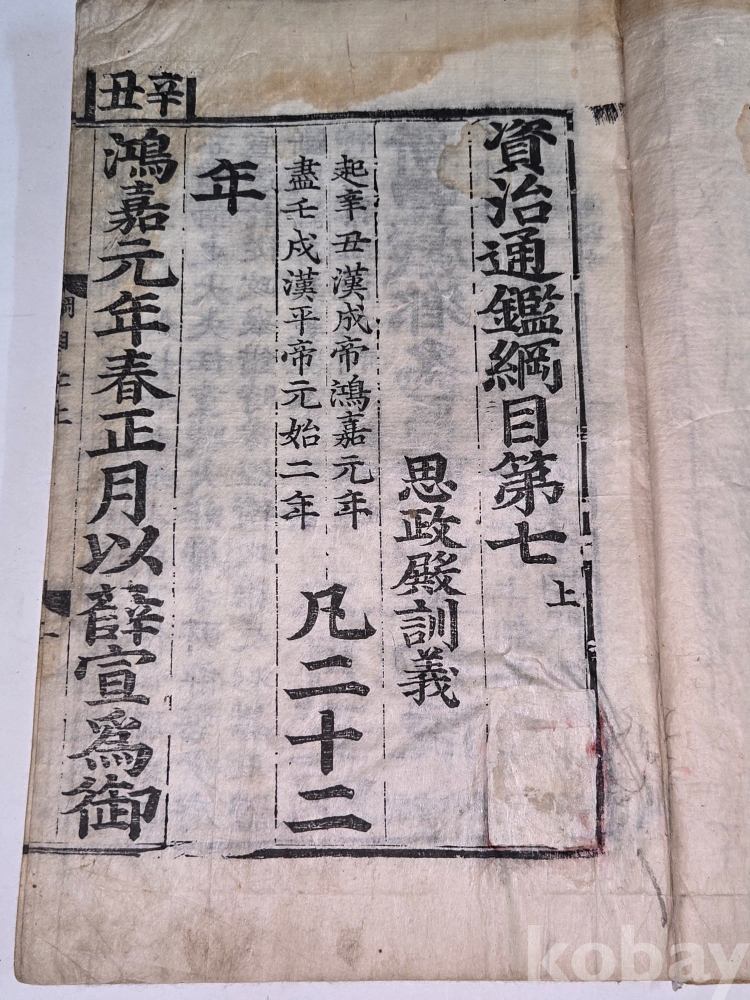 資治通鑑綱目第七上
思政殿訓義
起辛丑漢成帝鴻嘉元年
盡壬戌漢平帝元始二年
凡二十二
年
辛丑
鴻嘉元年春正月以薛宣爲御
綱目七上
一
kobay